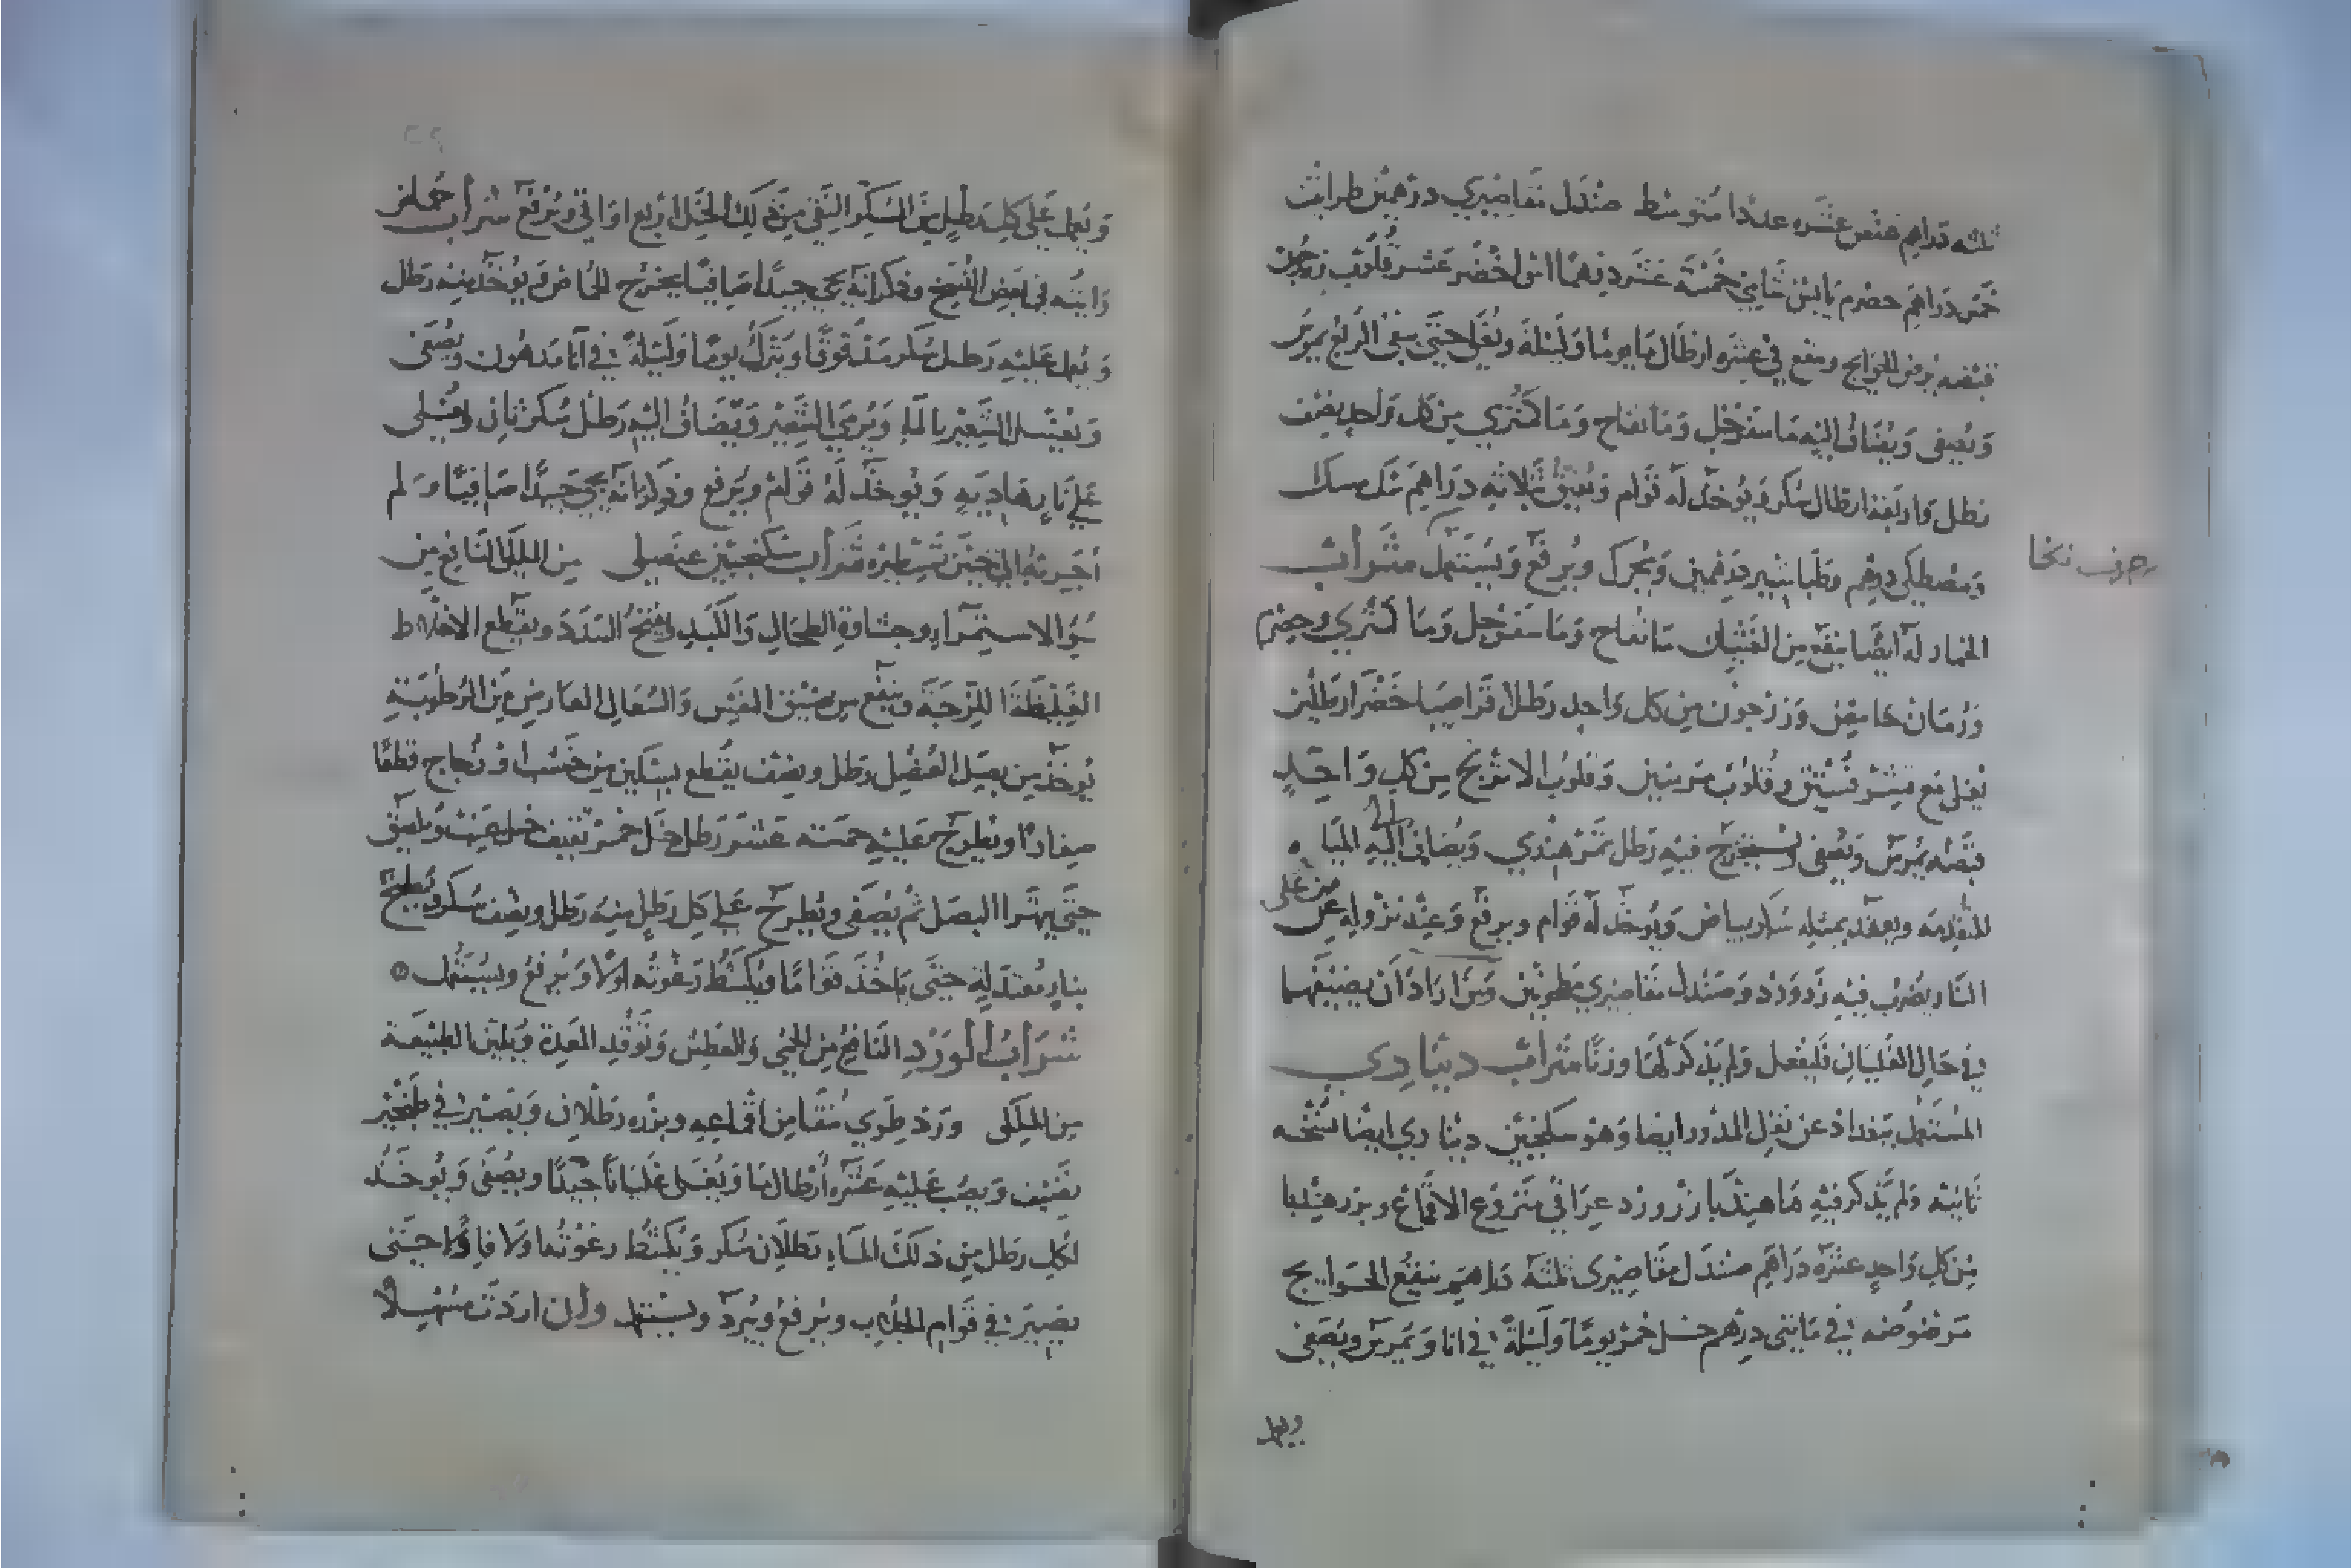 ثلثه دراهم عفص عشره عددا متوسط صندل مقاصيري درهمين طراثيث
خمس دراهم حصرم يابس شامي خمسة عشر درهما اس اخضر عشر قلوب زرجون
قبضه يرض الحوايج وينقع في عشره ارطال ما يوما وليلة ويغلى حتى يبقى الربع يمرس
ويصفى ويضاف اليه ما سفرجل وما تفاح وما كمثري من كل واحد نصف
رطل واربعة ارطال سكر ويوخذ له قوام ويفتق بثلاثه دراهم سك مسك
ومصطكي درهم وطباشير درهمين ويحرك ويرفع ويستعمل شراب
الخمار له ايضا ينفع من الغثيان ما تفاح وما سفرجل وما كمثري وحصرم
ورمان حامض وزرجون من كل واحد رطل قراصيا خضرا رطلين
يغلى مع قشر فستق وقلوب مرسين وقلوب الاترج من كل واحد
قبضه يمرس ويصفى ويستخرج فيه رطل تمر هندي ويضاف اليه المياه
المقدمه ويعقد بمثله سكر بياض ويوخذ له قوام ويرفع وعند نزوله عن
النار يضرب فيه زر ورد وصندل مقاصيري مطحونين ومن اراد ان يضيفهما
في حال الغليان فليفعل ولم يذكر لها وزنا شراب ديناري
المستعمل ببغداد عن نقل المذور ايضا وهو سكنجبين ديناري ايضا نسخه
ثانيه ولم يذكر فيه ما هندبا زر ورد عراقي منزوع الاقماع وبزر هندبا
من كل واحد عشرة دراهم صندل مقاصيري ثلثة دراهم ينقع الحوايج
مرضوضه في مايتى درهم خل خمر يوما وليلة في انا ويمرس ويصفى
ويعمل
ويعمل على كل رطل من السكر النقي من ذلك الخل اربع اواقي ويرفع شراب حماض
رايته في بعض النسخ وذكر انه يجي جيدا صافيا يخرج الحماض ويوخذ منه رطل
ويعمل عليه رطل سكر مدقوقا ويترك يوما وليلة في انا مدهون ويصفى
ويغسل الشعير بالماء ويرمى الشعير ويضاف اليه رطل سكر ثاني ويغلى
على نار هاديه ويوخذ له قوام ويرفع وذكر انه يجي جيدا صافيا ولم
اجربه الى حين تسطيره شراب سكنجبين عنصلي من الملكي النافع من
سو الاستمراء وجساوة الطحال والكبد ويفتح السدد ويقطع الاخلاط
الغليظة اللزجة وينفع من ضيق النفس والسعال العارض من الرطوبة
يوخذ من بصل العنصل رطل ونصف يقطع بسكين من خشب او زجاج قطعا
صغارا ويطرح عليه خمسه عشر رطل خل خمر ثقيف
حتى يتهرا البصل ثم يصفى ويطرح على كل رطل منه رطل ونصف سكر ويطبخ
بنار معتدلة حتى ياخذ قواما ويكشط رغوته اولا ويرفع ويستعمل
شراب الورد النافع من الحمى والعطش وتوقد المعدة ويلين الطبيعة
من الملكي ورد طري منقا من اقماعه وبزره رطلان ويصير في طنجير
نضيف ويصب عليه عشرة ارطال ما ويغلى غليانا جيدا ويصفى ويوخذ
لكل رطل من ذلك الماء رطلان سكر ويكشط رغوتها ولا فاولا حتى
يصير في قوام الجلاب ويرفع ويبرد ويستعمل وان اردت مسهلا